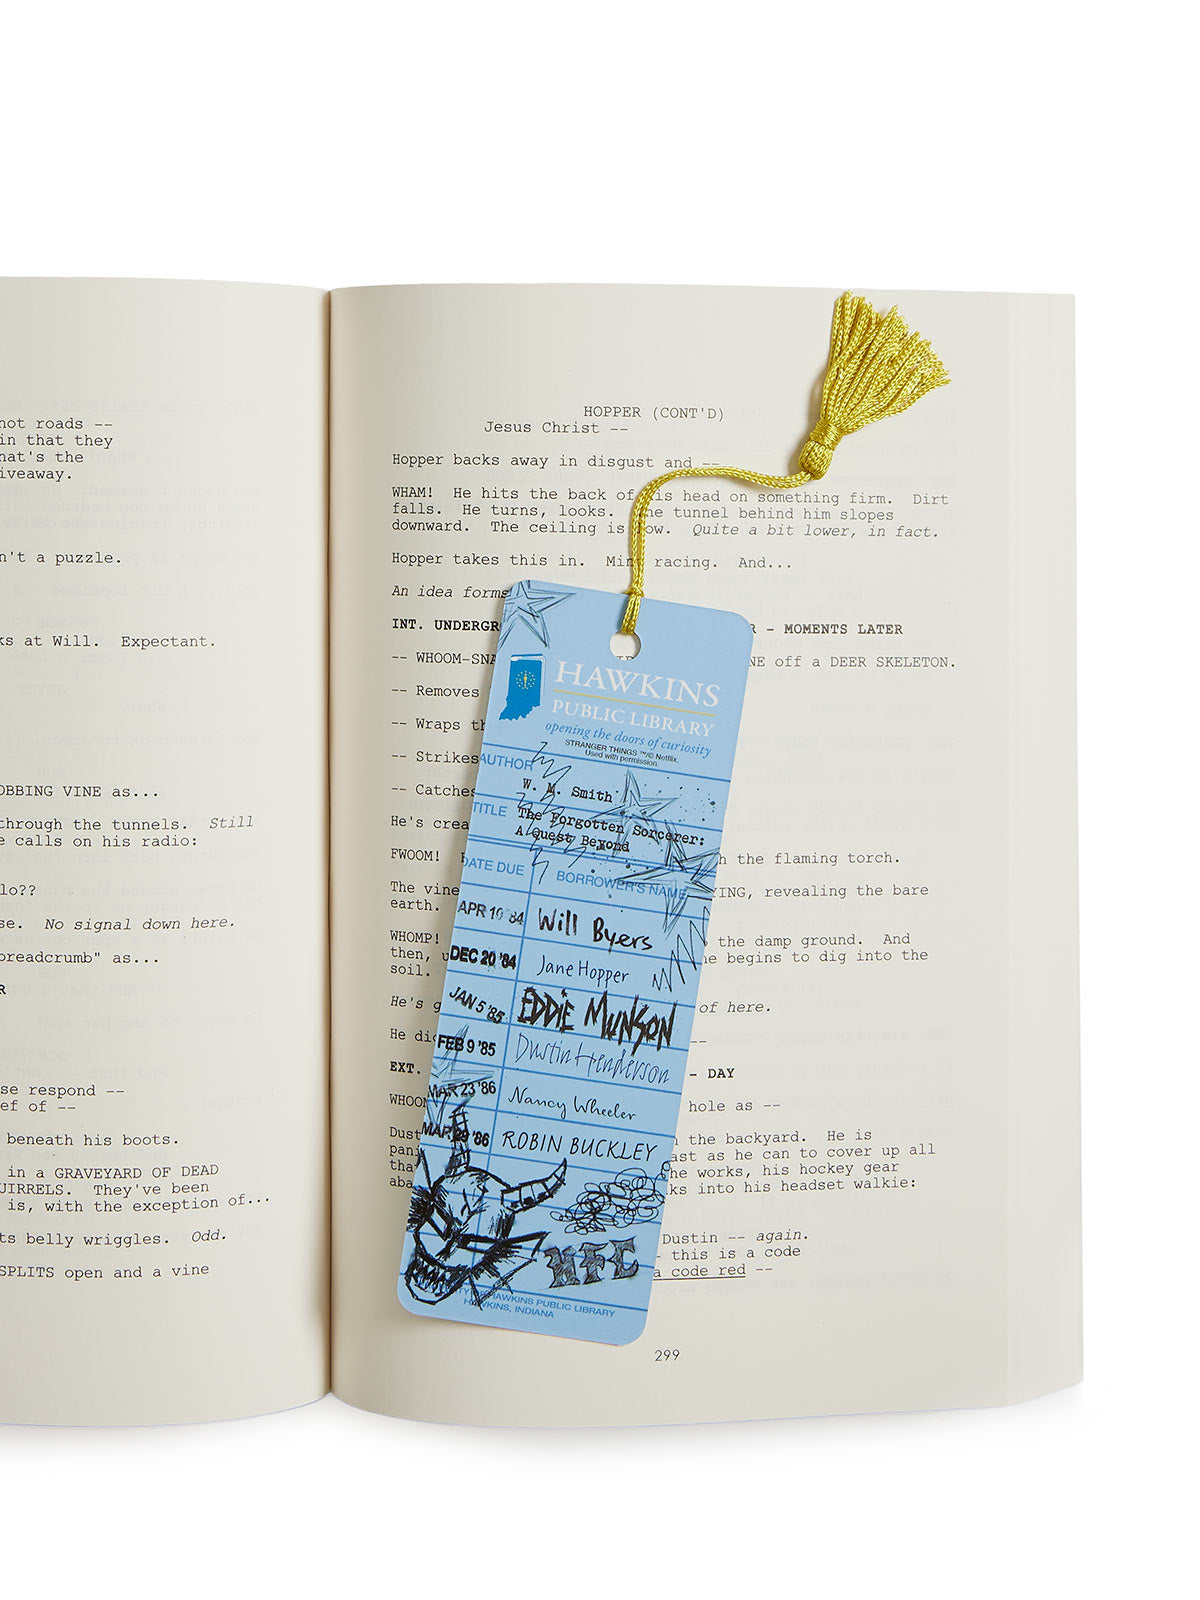 not roads --
in that they
hat's the
iveaway.
n't a puzzle.
ks at Will. Expectant.
OBBING VINE as...
through the tunnels. Still
e calls on his radio:
lo??
se. No signal down here.
breadcrumb" as...
R
se respond --
ef of --
beneath his boots.
in a GRAVEYARD OF DEAD
UIRRELS. They've been
is, with the exception of...
ts belly wriggles. Odd.
SPLITS open and a vine
HOPPER (CONT'D)
Jesus Christ --
Hopper backs away in disgust and --
WHAM! He hits the back of his head on something firm. Dirt
falls. He turns, looks. The tunnel behind him slopes
downward. The ceiling is low. Quite a bit lower, in fact.
Hopper takes this in. Mind racing. And...
An idea forms
INT. UNDERGR R - MOMENTS LATER
-- WHOOM-SNA NE off a DEER SKELETON.
-- Removes
-- Wraps th
-- Strikes
-- Catches
He's crea
FWOOM! h the flaming torch.
The vine YING, revealing the bare
earth.
WHOMP! the damp ground. And
then, u he begins to dig into the
soil.
He's g of here.
He dic --
EXT. - DAY
WHOOM hole as --
Dust n the backyard. He is
pani ast as he can to cover up all
tha he works, his hockey gear
aba ks into his headset walkie:
Dustin -- again.
- this is a code
a code red --
299
HAWKINS
PUBLIC LIBRARY
opening the doors of curiosity
STRANGER THINGS ™/© Netflix.
Used with permission.
AUTHOR
W. M. Smith
TITLE
The Forgotten Sorcerer:
A Quest Beyond
DATE DUE BORROWER'S NAME
APR 10 '84 Will Byers
DEC 20 '84 Jane Hopper
JAN 5 '85 EDDIE MUNSON
FEB 9 '85 Dustin Henderson
MAR 23 '86 Nancy Wheeler
MAR 29 '86 ROBIN BUCKLEY
HFC
HAWKINS PUBLIC LIBRARY
HAWKINS, INDIANA